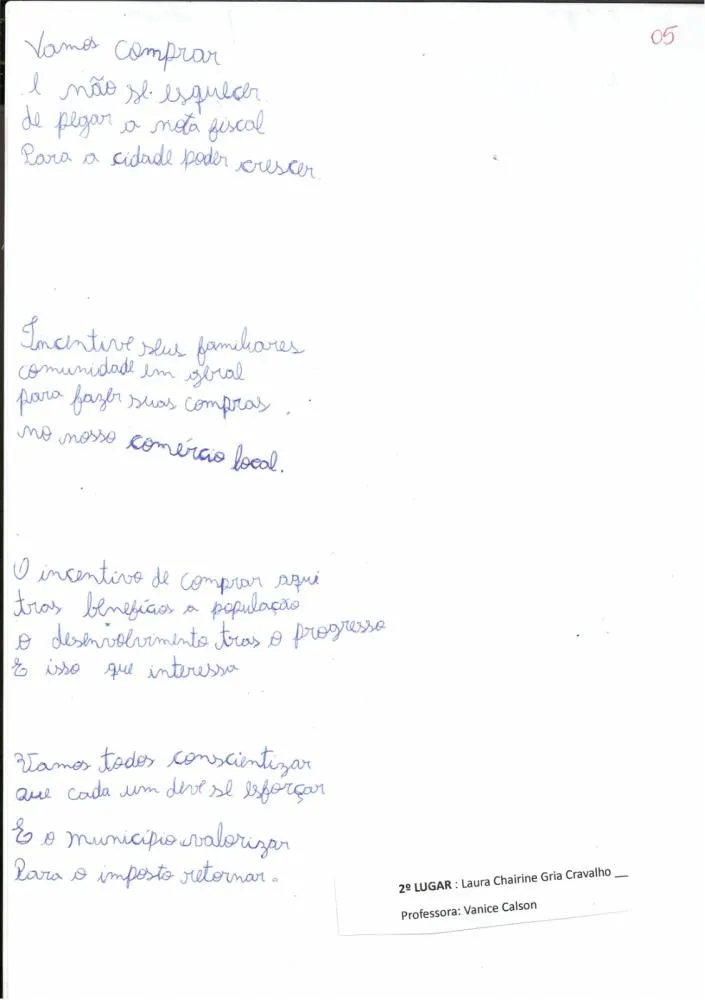 05
Vamos comprar
e não se esquecer
de pegar a nota fiscal
Para a cidade poder crescer.
Incentive seus familiares
comunidade em geral
para fazer suas compras
no nosso comércio local.
O incentivo de comprar aqui
tras benefícios a população
o desenvolvimento tras o progresso
E isso que interessa
Vamos todos conscientizar
que cada um deve se esforçar
E o município valorizar
Para o imposto retornar.
2º LUGAR : Laura Chairine Gria Cravalho __
Professora: Vanice Calson